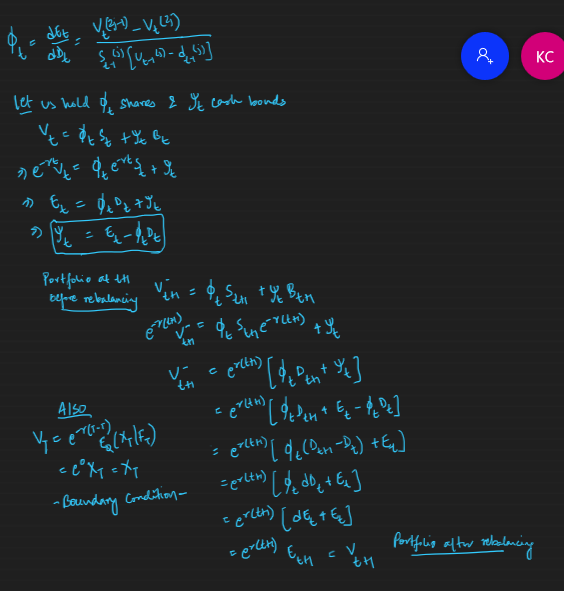 ϕ_t = dE_t/dD_t = (V_t^(2j-1) - V_t^(2j)) / (S_{t-1}^(j) [u_{t-1}^(j) - d_{t-1}^(j)])
KC
Let us hold ϕ_t shares & ψ_t cash bonds
V_t = ϕ_t S_t + ψ_t B_t
⇒ e^{-rt} V_t = ϕ_t e^{-rt} S_t + ψ_t
⇒ E_t = ϕ_t D_t + ψ_t
⇒ ψ_t = E_t - ϕ_t D_t
Portfolio at t+1
before rebalancing
V^-_{t+1} = ϕ_t S_{t+1} + ψ_t B_{t+1}
e^{-r(t+1)} V^-_{t+1} = ϕ_t S_{t+1} e^{-r(t+1)} + ψ_t
V^-_{t+1} = e^{r(t+1)} [ϕ_t D_{t+1} + ψ_t]
= e^{r(t+1)} [ϕ_t D_{t+1} + E_t - ϕ_t D_t]
= e^{r(t+1)} [ϕ_t (D_{t+1} - D_t) + E_t]
= e^{r(t+1)} [ϕ_t dD_t + E_t]
= e^{r(t+1)} [dE_t + E_t]
= e^{r(t+1)} E_{t+1} = V_{t+1}
Portfolio after rebalancing
Also
V_T = e^{-r(T-T)} E_Q(X_T|F_T)
= e^0 X_T = X_T
- Boundary Condition -